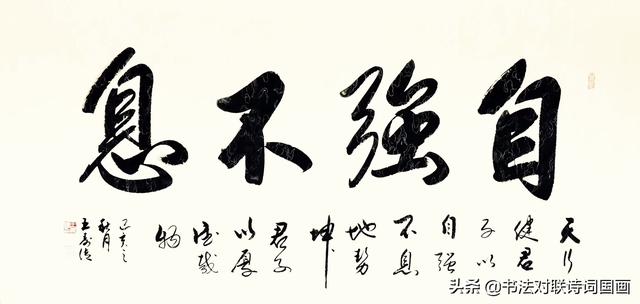 自強不息
天行
健君
子以
自强
不息
地勢
坤
君子
以厚
德載
物
己亥之
秋月
头条@书法对联诗词国画